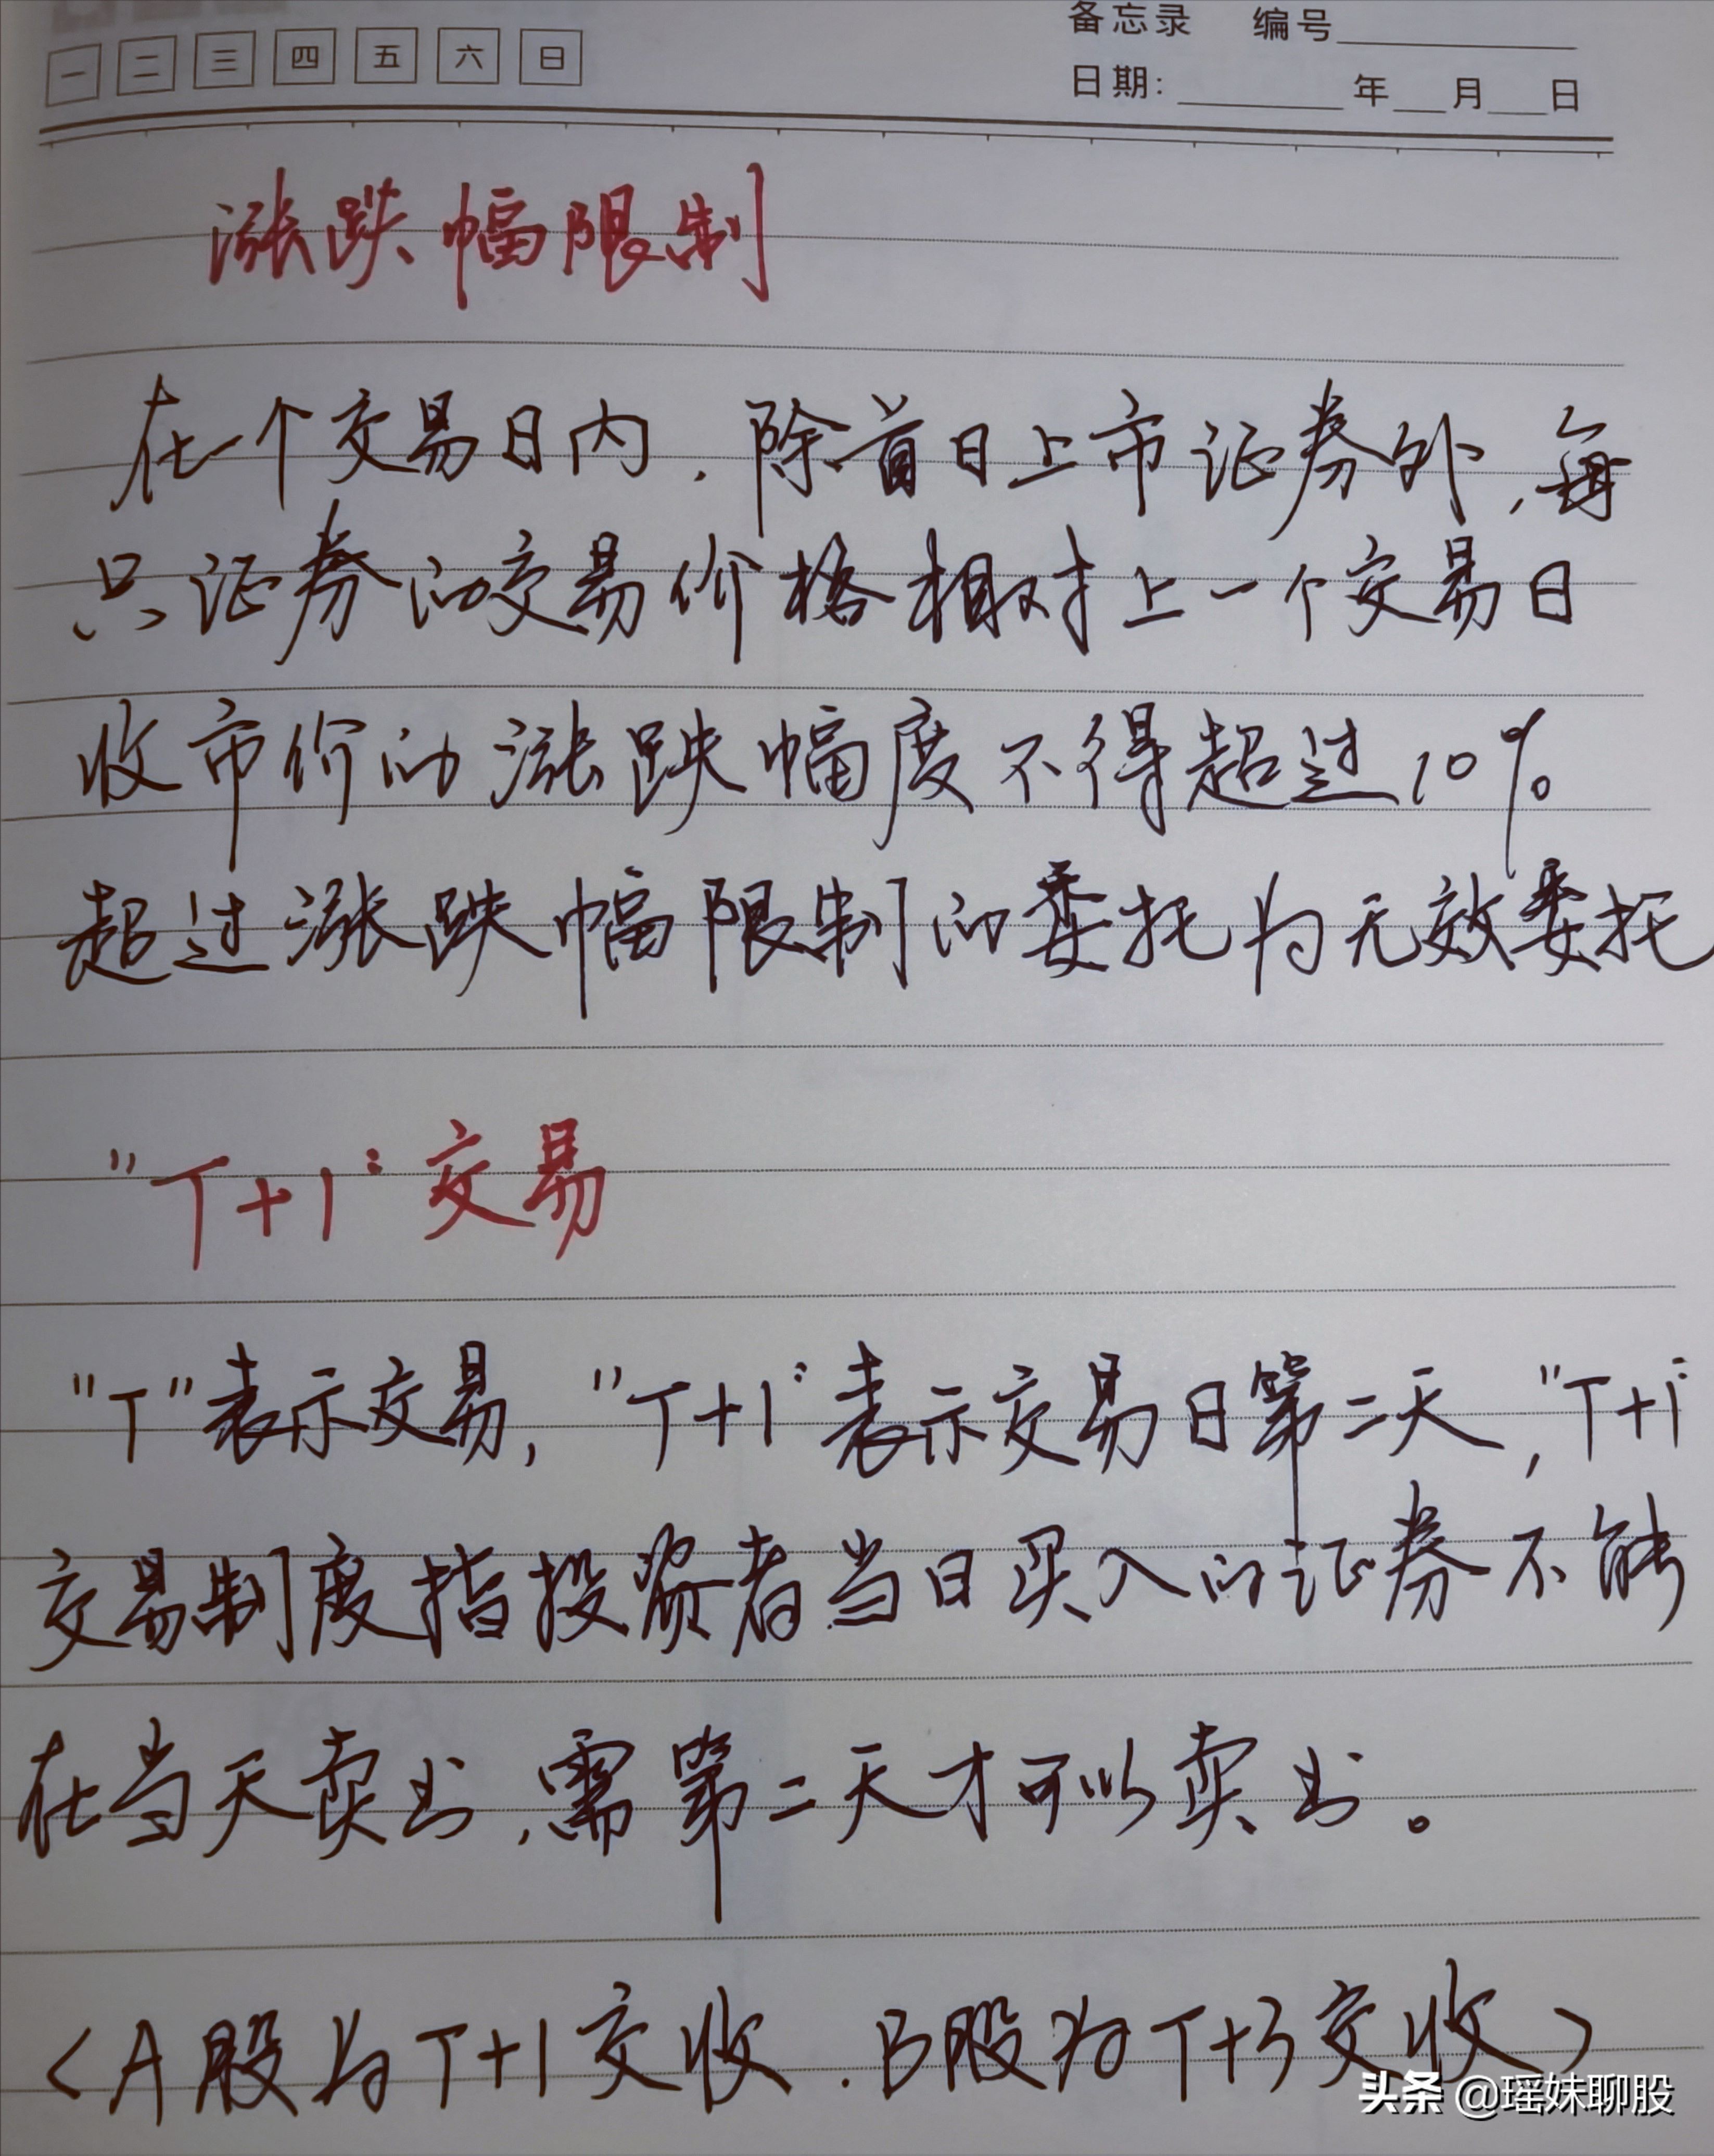 一 二 三 四 五 六 日
备忘录 编号
日期: 年 月 日
涨跌幅限制
在一个交易日内，除首日上市证券外，每
只证券的交易价格相对上一个交易日
收市价的涨跌幅度不得超过10%
超过涨跌幅限制的委托为无效委托
"T+1"交易
"T"表示交易，"T+1"表示交易日第二天，"T+1"
交易制度指投资者当日买入的证券不能
在当天卖出，需第二天才可以卖出。
<A股为T+1交收.B股为T+3交收>
头条 @瑶妹聊股